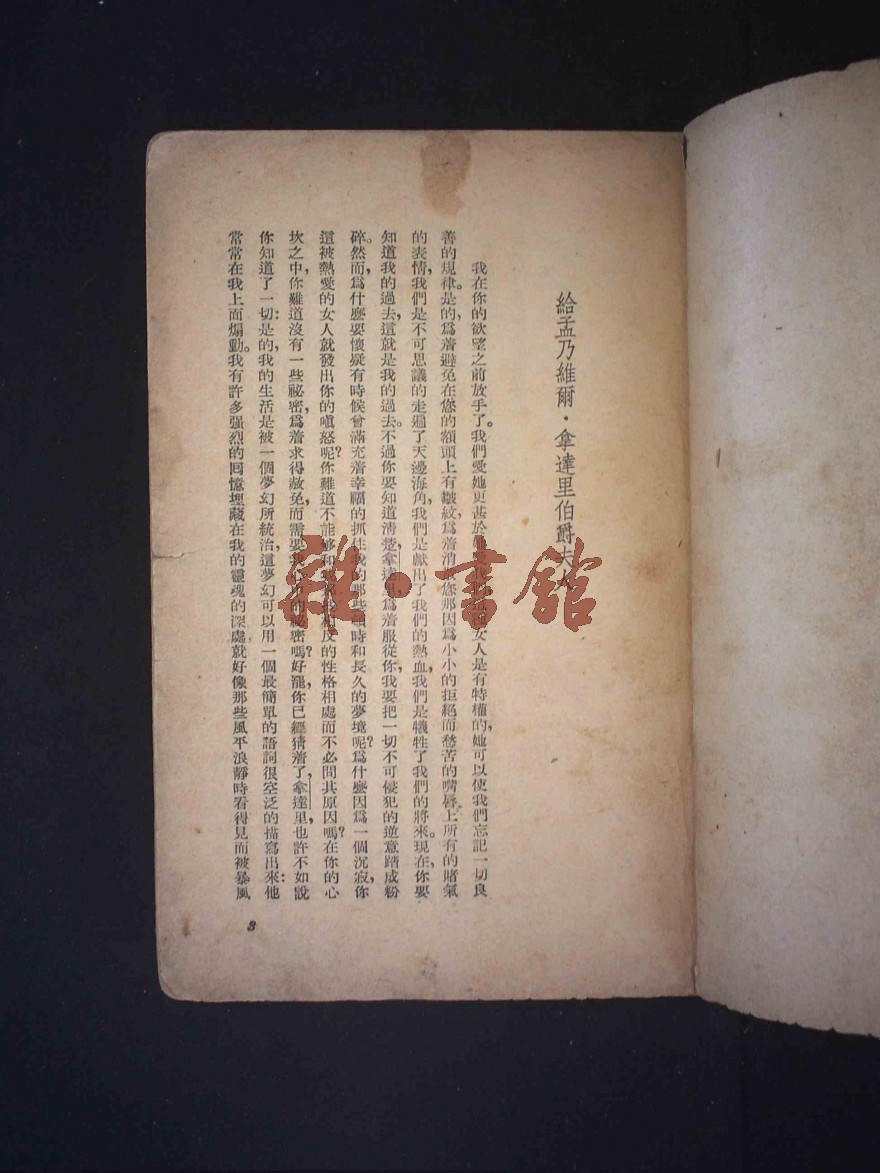 給孟乃維爾·拿達里伯爵夫人
我在你的欲望之前放手了。我們愛她更甚於她愛我們女人是有特權的，她可以使我們忘記一切良
善的規律。是的，爲着避免在您的額頭上有皺紋，爲着消散您那因爲小小的拒絕而愁苦的嘴唇上所有的賭氣
的表情，我們是不可思議的走過了天邊海角，我們是獻出了我們的熱血，我們是犧牲了我們的將來。現在，你要
知道我的過去，這就是我的過去。不過你要知道清楚，拿達里，爲着服從你，我要把一切不可侵犯的逆意踏成粉
碎。然而，爲什麼要懷疑有時候會滿充着幸福的抓住我的那些頓時和長久的夢境呢？爲什麼因爲一個沉寂，你
這被熱愛的女人就發出你的嗔怒呢？你難道不能够和我那些相反的性格相處而不必問其原因嗎？在你的心
坎之中，你難道沒有一些祕密，爲着求得赦免，而需要我心中的祕密嗎？好罷，你已經猜着了，拿達里，也許不如說
你知道了一切：是的，我的生活是被一個夢幻所統治，這夢幻可以用一個最簡單的語詞很空泛的描寫出來：他
常常在我上面煽動。我有許多强烈的回憶埋藏在我的靈魂的深處就好像那些風平浪靜時看得見而被暴風
3
雜·書館